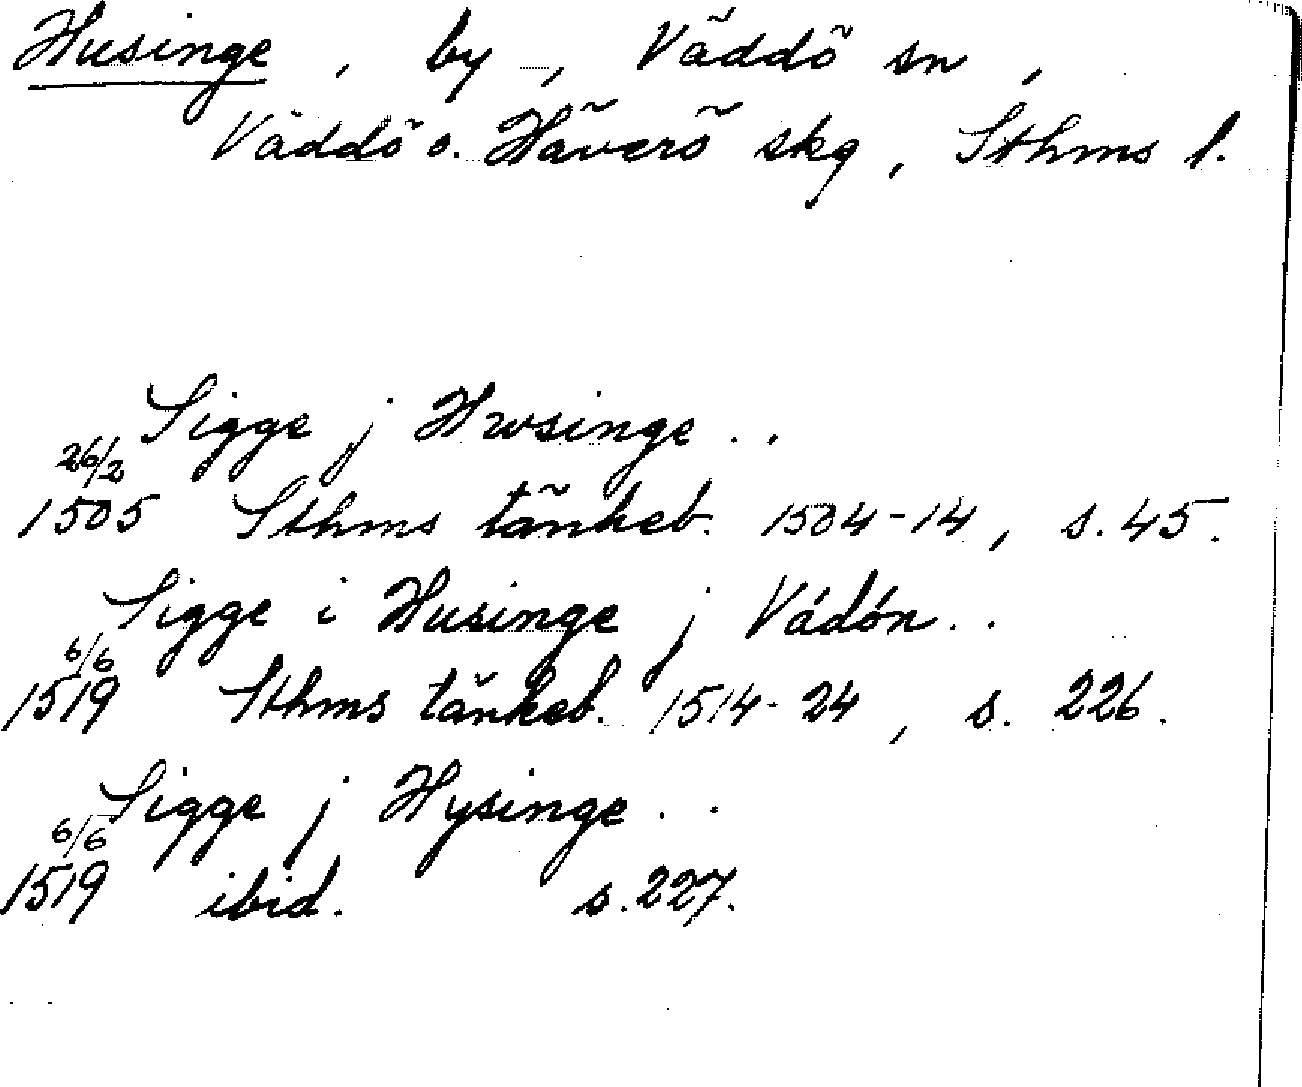 Husinge, by, Väddö sn,
Väddö o. Häverö skg, Sthms l.
Sigge j Hwsinge..
26/2
1505 Sthms tänkeb. 1504-14, s. 45.
Sigge i Husinge j Vádón..
6/6
1519 Sthms tänkeb. 1514-24, s. 226.
Sigge j Hysinge..
6/6
1519 ibid. s. 227.